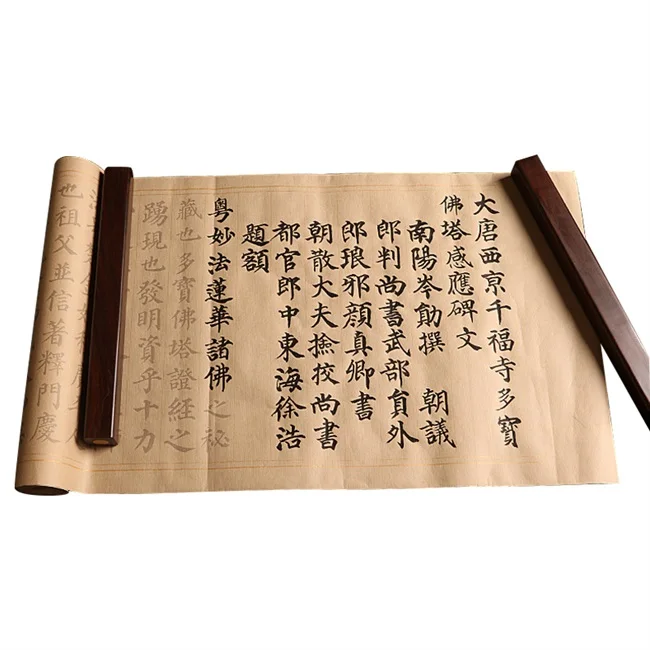 大唐西京千福寺多寶
佛塔感應碑文
南陽岑勛撰　朝議
郎判尚書武部員外
郎琅邪顏真卿書
朝散大夫撿挍尚書
都官郎中東海徐浩
題額
粵妙法蓮華諸佛之秘
藏也多寶佛塔證經之
踴現也發明資乎十力
也祖父並信著釋門慶